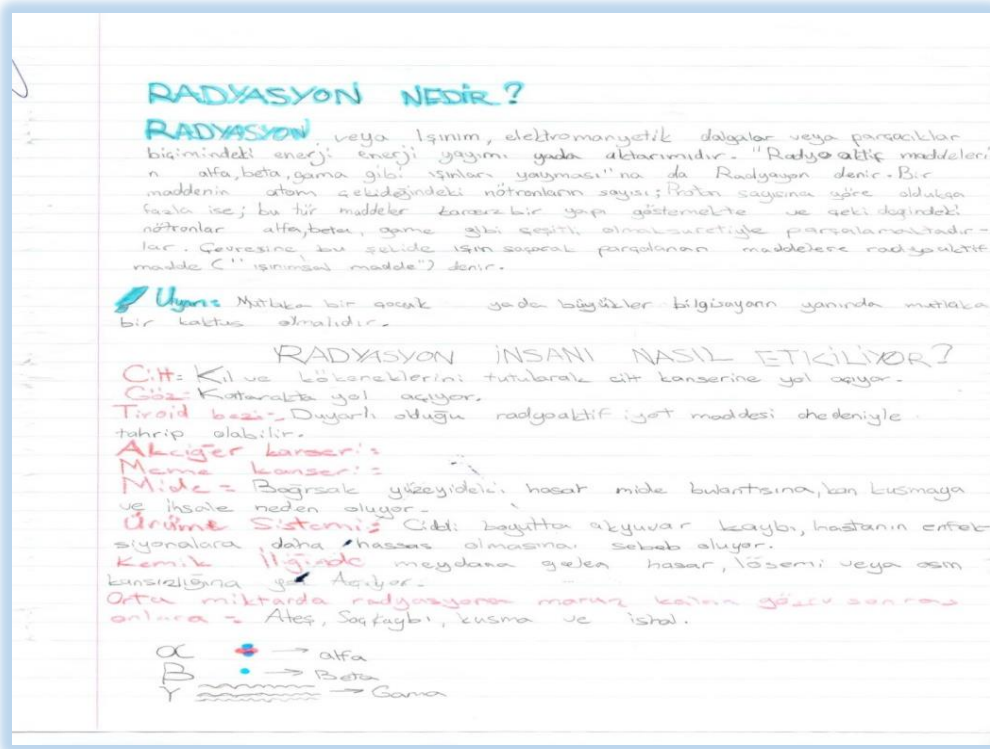 RADYASYON NEDİR?
RADYASYON veya Işınım, elektromanyetik dalgalar veya parçacıklar
biçimindeki enerji enerji yayımı yada aktarımıdır. "Radyoaktif maddeleri
n alfa, beta, gama gibi ışınları yayması"na da Radyayon denir. Bir
maddenin atom çekideğindeki nötronların sayısı; Proton sayısına göre oldukça
fazla ise; bu tür maddeler kararsız bir yapı göstermekte ve çekideğindeki
nötronlar alfa, beta, game gibi çeşitli olmak suretiyle parçalamaktadır-
lar. Çevresine bu şekide ışın saçarak parçalanan maddelere radyoaktif
madde ("ışınımsal madde") denir.
Uyarı= Mutlaka bir çocuk yada büyükler bilgisayarın yanında mutlaka
bir kaktus olmalıdır.
RADYASYON İNSANI NASIL ETKİLİYOR?
Cilt= Kıl ve kökeneklerini tutularak cilt kanserine yol açıyor.
Göz= Katarakta yol açıyor.
Tiroid bezi= Duyarlı olduğu radyoaktif iyot maddesi nedeniyle
tahrip olabilir.
Akciğer kanseri=
Meme kanseri=
Mide= Bağrsak yüzeyideki hasar mide bulantısına, kan kusmaya
ve ihsale neden oluyor.
Ürüme Sistemi= Ciddi boyutta akyuvar kaybı, hastanın enfek-
siyonalara daha hassas olmasına sebeb oluyor.
Kemik İliğinde meydana gelen hasar, lösemi veya
kansızlığına Açıyor.
Orta miktarda radyasyona maruz
= Ateş, Saç kaybı, kusma ve ishal.
α → alfa
B → Beta
γ → Gama